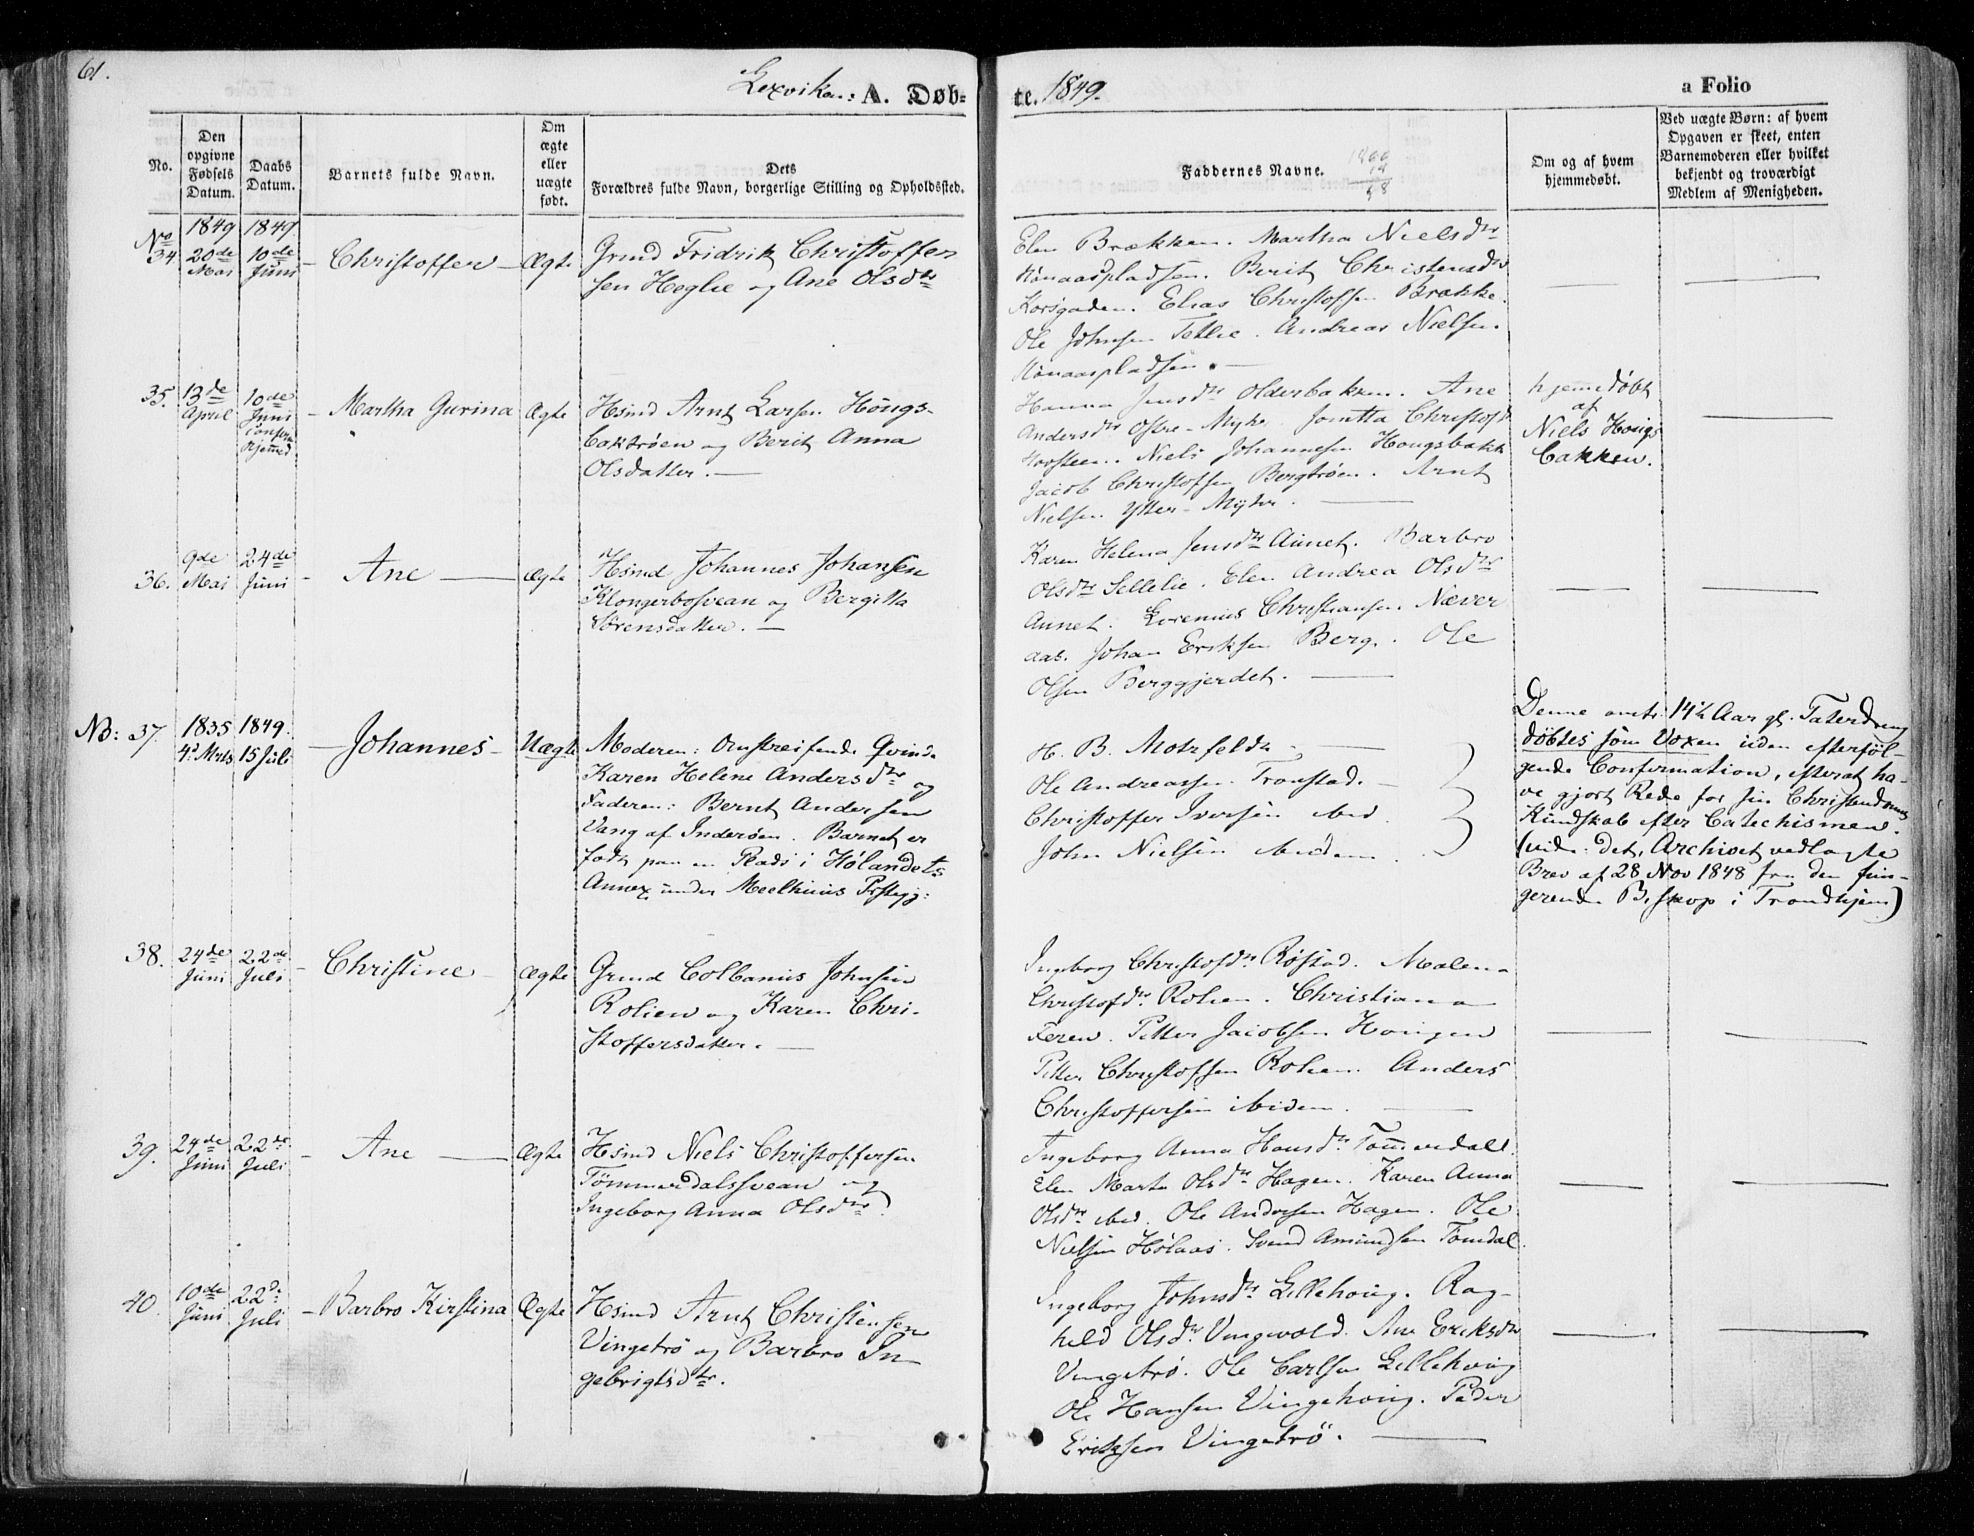 61.
Lexviken: A. Døb-
te. 1849.
a Folio
No.
Den opgivne Fødsels Datum.
Daabs Datum.
Barnets fulde Navn.
Om ægte eller uægte født.
Dets
Forældres fulde Navn, borgerlige Stilling og Opholdssted.
Faddernes Navne.
Om og af hvem hjemmedøbt.
Ved uægte Børn: af hvem
Opgaven er skeet, enten
Barnemoderen eller hvilket
bekjendt og troværdigt
Medlem af Menigheden.
No 34
1849 20de Mai
1849 10de Juni
Christoffer
Ægte
Grmd Fridrik Christoffer
sen Heglie og Ane Olsdtr
Elen Brækken. Martha Nielsdtr
Berit Christensdtr
Korsgaden. Elias Christofsen Brække.
Ole Johnsen Tetlie. Andreas Nielsen
35.
13de April
10de Juni
Martha Gurina
Ægte
Hsmd Arnt Larsen Hougs-
baktrøen og Berit Anna
Olsdatter.
Hanna Jensdtr Olderbakken. Ane
Andersdtr Østre-Myhr. Christofd
Niels Johannesen Hougsbakk
Jacob Christofsen Bergtrøen. Arnt
Nielsen Ytter-Myhr.
hjemedøbt
af
Niels Hougs
bakken.
36.
9de Mai
24de Juni
Ane
Ægte
Hsmd Johannes Johansen
Klongerbosvean og Bergitta
Sørensdatter.
Karen Helena Jensdtr Aunet. Barbro
Olsdtr Sellelie. Elen Andrea Olsdtr
Aunet. Lorenius Christiansen Næver
aas. Johan Eriksen Berg. Ole
Olsen Berggjerdet.
NB: 37.
1835 4de Mrts
1849. 15 Juli
Johannes
Uægte
Moderen: omstreifende Qvinde
Karen Helene Andersdtr og
Faderen: Bernt Andersen
Vang af Inderøen. Barnet er
født paa en Plads i Hølandets
Annex under Meelhuus Prstegj:
H. B. Motzfeldt
Ole Andreassen Tronstad.
Christoffer Iversen ibid.
John Nielsen ibidem.
Denne omtr. 14½ Aar gl. Taterdreng
døbtes som Voxen uden efterføl-
gende Confirmation, efterat ha-
ve gjort Rede for sin Christendoms
Kundskab efter Catechismen.
(vide: det, Archivet vedlagte
Brev af 28 Nov 1848 fra den fun-
gerende Biskop i Trondhjem)
38.
24de Juni
22de Juli
Christine
Ægte
Grmd Colbanus Johnsen
Rolien og Karen Chri-
stoffersdatter.
Ingeborg Christofdtr Røstad. Malena
Christofdtr Rolien. Christiana
Feren. Petter Jacobsen Hougen
Petter Christofsen Rolien. Anders
Christoffersen ibidem.
39.
24de Juni
22de Juli
Ane
Ægte
Hsmd Niels Christoffersen
Tømmerdalssvean og
Ingeborg Anna Olsdtr.
Ingeborg Anna Hansdtr Tømerdall.
Elen Marta Olsdtr Hagen. Karen Anna
Olsdtr ibid. Ole Andersen Hagen. Ole
Nielsen Hølaas. Svend Amundsen Tømdal.
40.
10de Juni
22de Juli
Barbro Kirstina
Ægte
Hsmd Arnt Christensen
Vingetrø og Barbro In-
gebrigtsdtr.
Ingeborg Johnsdtr Lillehoug. Rag-
hild Olsdtr Vingvold. Ane Eriksdtr
Vingetrø. Ole Carlsen Lillehoug
Ole Hansen Vingehoug. Peder
Eriksen Vingetrø.